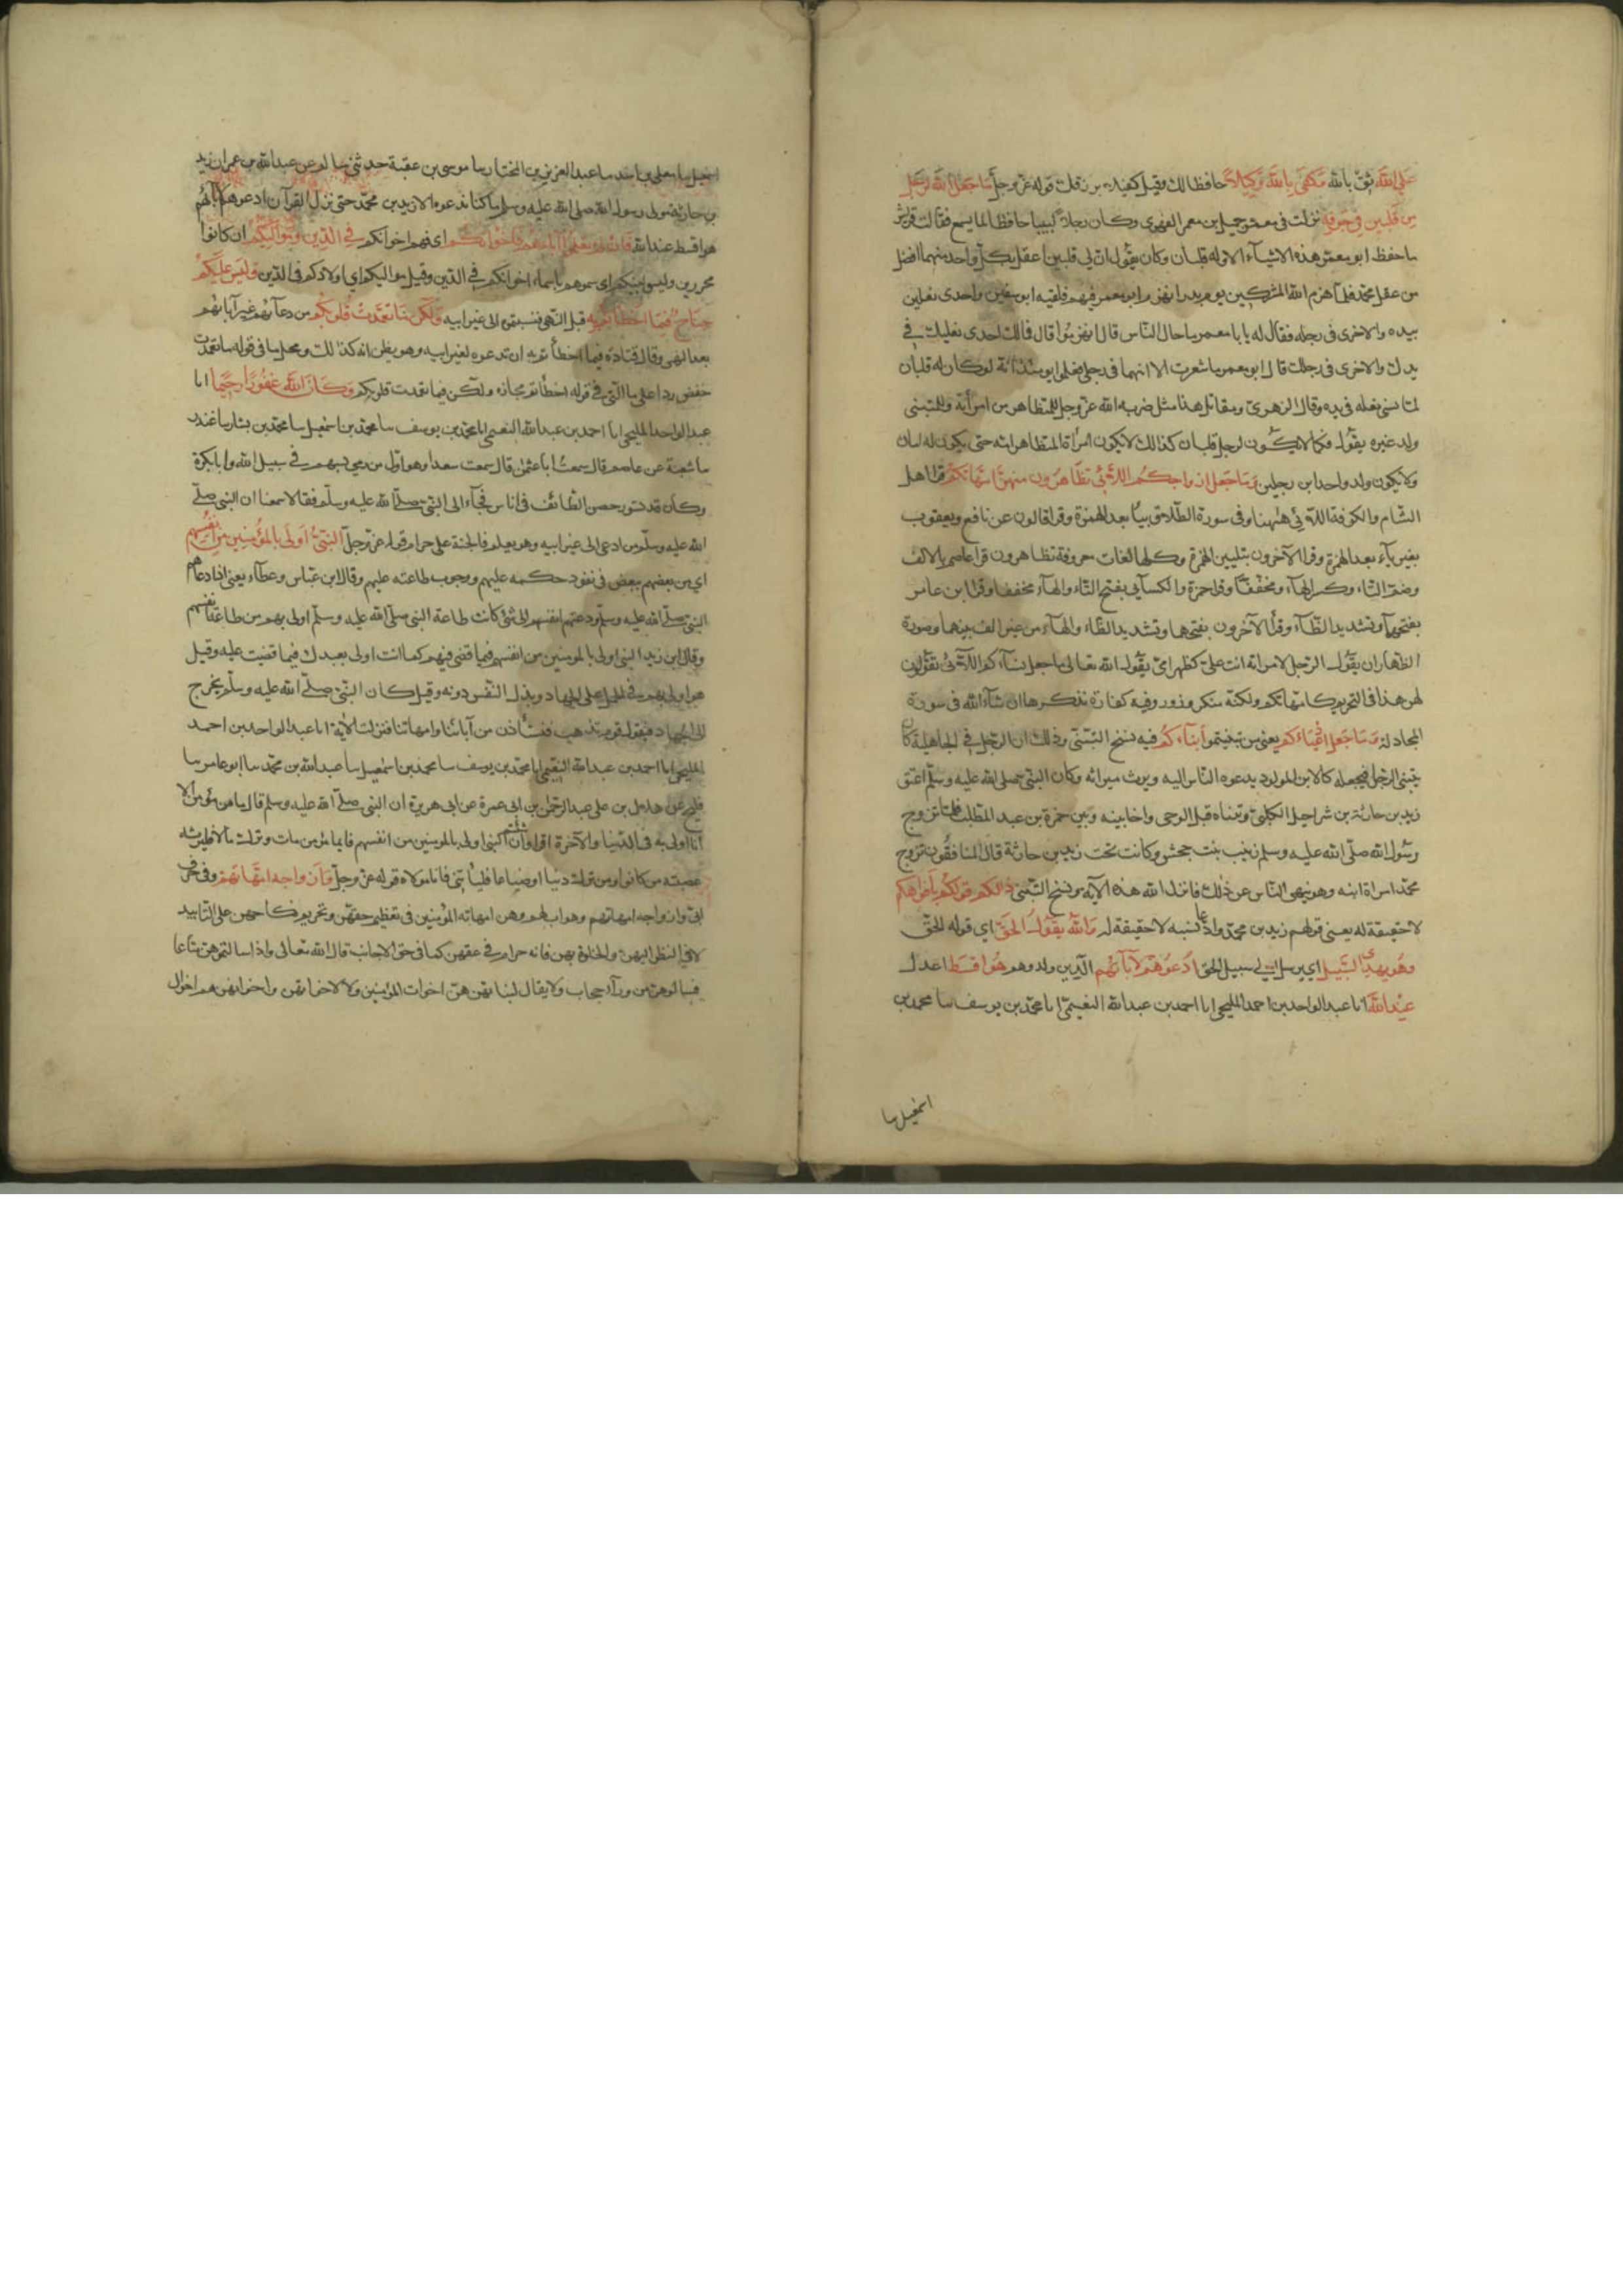 على الله ثق بالله وكفى بالله وكيلا حافظا لك وقيل كفيلا برزقك قوله عز وجل ما جعل الله لرجل
من قلبين في جوفه نزلت في معمر جميل بن معمر الفهري وكان رجلا لبيبا حافظا لما يسمع فقالت قريش
ما حفظ ابو معمر هذه الاشياء الا وله قلبان وكان يقول ان لي قلبين اعقل بكل واحد منهما افضل
من عقل محمد فلما هزم الله المشركين يوم بدر انهزم ابو معمر فيهم فلقيه ابو سفين واحدى نعليه
بيده والاخرى في رجله فقال له يا با معمر ما حال الناس قال انهزموا قال فما لك احدى نعليك في
يدك والاخرى في رجلك قال ابو معمر ما شعرت الا انهما في رجلي فعلموا يومئذ انه لو كان له قلبان
لما نسي نعله في يده وقال الزهري ومقاتل هذا مثل ضربه الله عز وجل للمتظاهر من امرأته وللمتبني
ولد غيره يقول فكما لا يكون لرجل قلبان كذلك لا تكون امرأة المتظاهر امه حتى يكون له امان
ولا يكون ولد واحد ابن رجلين وما جعل ازواجكم اللائي تظاهرون منهن امهاتكم قرا اهل
الشام والكوفة اللائي ههنا وفي سورة الطلاق بياء بعد الهمزة وقرا قالون عن نافع ويعقوب
بغير ياء بعد الهمزة وقرا الآخرون بتليين الهمزة وكلها لغات معروفة تظاهرون قرا عاصم بالالف
وضم التاء وكسر الهاء ومخففا وقرا حمزة والكسائي بفتح التاء والهاء مخففا وقرا ابن عامر
بفتحهما وتشديد الظاء وقرأ الآخرون بفتحها وتشديد الظاء والهاء من غير الف بينهما وصورة
الظهار ان يقول الرجل لامراته انت علي كظهر امي يقول الله تعالى ما جعل نساءكم اللائي تقولون
لهن هذا في التحريم كامهاتكم ولكنه منكر وزور وفيه كفارة نذكرها ان شاء الله في سورة
المجادلة وما جعل ادعياءكم يعني من تبنيتموه أبناءكم فيه نسخ التبني وذلك ان الرجل في الجاهلية كان
يتبنى الرجل فيجعله كالابن المولود يدعوه الناس اليه ويرث ميراثه وكان النبي صلى الله عليه وسلم اعتق
زيد بن حارثة بن شراحيل الكلبي وتبناه قبل الوحى واخا بينه وبين حمزة بن عبد المطلب فلما تزوج
رسول الله صلى الله عليه وسلم زينب بنت جحش وكانت تحت زيد بن حارثة قال المنافقون تزوج
محمد امراة ابنه وهو ينهى الناس عن ذلك فانزل الله هذه الآية ونسخ التبني ذالكم قولكم بأفواهكم
لا حقيقة له يعني قولهم زيد بن محمد وادعا نسبه لا حقيقة له والله يقول الحق اي قوله الحق
وهو يهدي السبيل اي يرسل الى سبيل الحق ادعوهم لآبائهم الذين ولدوهم هو اقسط اعدل
عند الله انا عبد الواحد بن احمد المليحي انا احمد بن عبد الله النعيمي انا محمد بن يوسف سا محمد بن
اسمعيل سا
اسمعيل سا معلى بن اسد سا عبد العزيز بن المختار سا موسى بن عقبة حدثني سالم عن عبد الله بن عمر ان زيد
بن حارثة مولى رسول الله صلى الله عليه وسلم ما كنا ندعوه الا زيد بن محمد حتى نزل القرآن ادعوهم لآبائهم
هو اقسط عند الله فان لم تعلموا آباءهم فاخوانكم اي فهم اخوانكم في الدين ومواليكم ان كانوا
محررين وليسوا ببنيكم اي سموهم باسماء اخوانكم في الدين وقيل مواليكم اي اولادكم في الدين وليس عليكم
جناح فيما اخطأتم به قبل النهي فنسبتم الى غير ابيه ولكن ما تعمدت قلوبكم من دعائهم غير آبائهم
بعد النهي وقال قتادة فيما اخطأتم به ان تدعوه لغير ابيه وهو يظن انه كذلك ومحل ما في قوله ما تعمدت
خفض ردا على ما التي في قوله اخطأتم مجازه ولكن فيما تعمدت قلوبكم وكان الله غفورا رحيما انا
عبد الواحد المليحي انا احمد بن عبد الله النعيمي انا محمد بن يوسف سا محمد بن اسمعيل سا محمد بن بشار سا غندر
سا شعبة عن عاصم قال سمعت ابا عثمن قال سمعت سعدا وهو اول من رمى بسهم في سبيل الله وابا بكرة
وكان قد تسور حصن الطائف في اناس فجاء الى النبي صلى الله عليه وسلم فقالا سمعنا ان النبي صلى
الله عليه وسلم من ادعى الى غير ابيه وهو يعلم فالجنة عليه حرام قوله عز وجل النبي اولى بالمؤمنين من انفسهم
اي من بعضهم ببعض في نفوذ حكمه عليهم ووجوب طاعته عليهم وقال ابن عباس وعطاء يعني اذا دعاهم
النبي صلى الله عليه وسلم ودعتهم انفسهم الى شئ كانت طاعة النبي صلى الله عليه وسلم اولى بهم من طاعة انفسهم
وقال ابن زيد النبي اولى بالمومنين من انفسهم فيما قضى فيهم كما انت اولى بعبدك فيما قضيت عليه وقيل
هو اولى بهم في الحمل على الجهاد وبذل النفس دونه وقيل كان النبي صلى الله عليه وسلم يخرج
الى الجهاد فيقول قوم نذهب فنستأذن من آبائنا وامهاتنا فنزلت الآية انا عبد الواحد بن احمد
المليحي انا احمد بن عبد الله النعيمي انا محمد بن يوسف سا محمد بن اسمعيل سا عبد الله بن محمد سا ابو عامر سا
فليح عن هلال بن علي عبد الرحمن بن ابي عمرة عن ابي هريرة ان النبي صلى الله عليه وسلم قال ما من مؤمن الا
انا اولى به في الدنيا والآخرة اقرؤا ان شئتم النبي اولى بالمومنين من انفسهم فايما مؤمن مات وترك مالا فليرثه
عصبته من كانوا ومن ترك دينا او ضياعا فليأتني فانا مولاه قوله عز وجل وازواجه امهاتهم وفي حرف
ابي وازواجه امهاتهم وهو اب لهم وهن امهاته المؤمنين في تعظيم حقهن وتحريم نكاحهن على التابيد
لا في النظر اليهن والخلوة بهن فانه حرام في حقهن كما في حق الاجانب قال الله تعالى واذا سالتموهن متاعا
فسالوهن من وراء حجاب ولا يقال لبناتهن هن اخوات المؤمنين ولا لاخواتهن واخوانهن هم اخوال